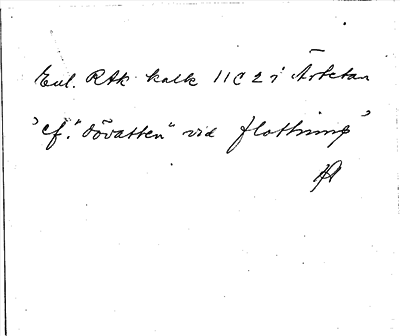 Enl. RAK kalk 11 C 2 i Årtetan
'cf. "dövatten" vid flottning'